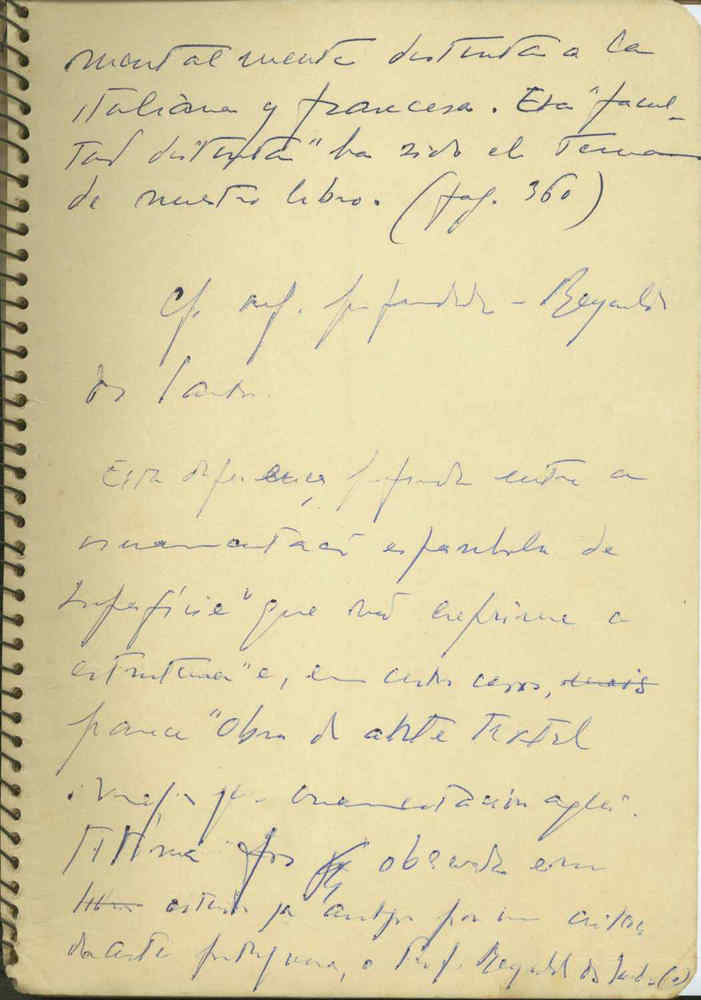 mentalmente distinta a la
italiana y francesa. Esa "facul-
tad distinta" ha sido el tema
de nuestro libro. (pag. 360)
cf. ref. profundidade - Reynaldo
dos Santos.
Esta diferença profunda entre a
ornamentação espanhola de
superfície "que não exprime a
estrutura" e, em certos casos, mais
parece "obra de arte textil
que ornamentación
foi observada em
estudo ja antigo por um critico
da arte portuguesa, o Prof. Reynaldo dos Santos (2)